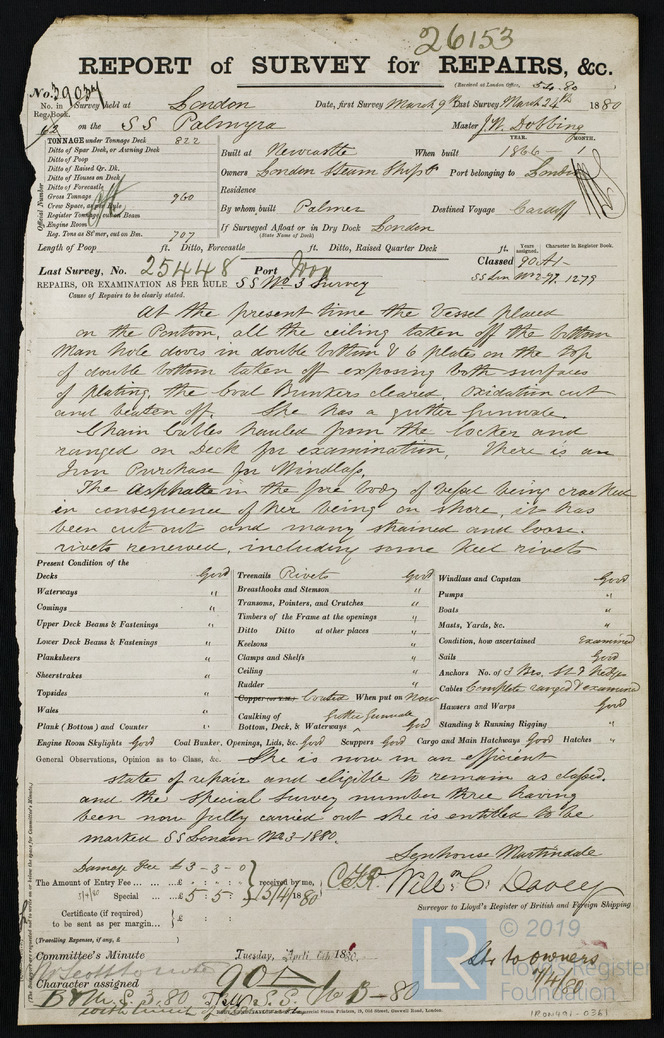 26153
REPORT of SURVEY for REPAIRS, &c.
(Received at London Office, 5.4.80
No. 39037
No. in Reg. Book. Survey held at London Date, first Survey March 9th Last Survey March 24th 1880
92 on the SS Palmyra Master J. W. Dobbing
TONNAGE under Tonnage Deck 822
Ditto of Spar Deck, or Awning Deck
Ditto of Poop
Ditto of Raised Qr. Dk.
Ditto of Houses on Deck
Ditto of Forecastle
Gross Tonnage 960
Crew Space, as per Rule
Register Tonnage, cut on Beam
Engine Room
Reg. Tons as St'mer, cut on Bm. 707
Official Number
YEAR. MONTH.
Built at Newcastle When built 1866 - 1
Owners London Steam Ship Co Port belonging to London
Residence
By whom built Palmer Destined Voyage Cardiff
If Surveyed Afloat or in Dry Dock London
(State Name of Dock)
Length of Poop ft. Ditto, Forecastle ft. Ditto, Raised Quarter Deck ft.
Years assigned. Character in Register Book.
Last Survey, No. 25448 Port Iron Classed 90 A1-
REPAIRS, OR EXAMINATION AS PER RULE SS No 3 Survey SS Lon No 2-97. 1279
Cause of Repairs to be clearly stated.
At the present time the Vessel placed
on the Pontoon, all the ceiling taken off the bottom
Man hole doors in double bottom & 6 plates on the top
of double bottom taken off exposing both surfaces
of plating, the Coal Bunkers cleared, Oxidation cut
and beaten off. She has a gutter Gunwale.
Chain Cables hauled from the locker and
ranged on Deck for examination, There is an
Iron Purchase for Windlass,
The Asphalte in the fore body of vessel being cracked
in consequence of her being on shore, it has
been cut out and many strained and loose
rivets renewed, including some Keel rivets
Present Condition of the
Decks Good
Waterways "
Comings "
Upper Deck Beams & Fastenings "
Lower Deck Beams & Fastenings "
Planksheers "
Sheerstrakes "
Topsides "
Wales "
Plank (Bottom) and Counter "
Treenails Rivets Good
Breasthooks and Stemson "
Transoms, Pointers, and Crutches "
Timbers of the Frame at the openings "
Ditto Ditto at other places "
Keelsons "
Clamps and Shelfs "
Ceiling "
Rudder "
Copper (or Y.M.) Coated When put on Now
Caulking of Bottom, Deck, & Waterways Gutter Gunwale Good
Windlass and Capstan Good
Pumps "
Boats "
Masts, Yards, &c. "
Condition, how ascertained Examined
Sails Good
Anchors No. of 3 Brs, St & Kedge
Cables Complete ranged & examined
Hawsers and Warps Good
Standing & Running Rigging "
Engine Room Skylights Good Coal Bunker, Openings, Lids, &c. Good Scuppers Good Cargo and Main Hatchways Good Hatches "
General Observations, Opinion as to Class, &c. She is now in an efficient
state of repair and eligible to remain as classed.
and the Special Survey number three having
been now fully carried out she is entitled to be
marked SS London No 3-1880.
Damage Fee £ 3-3-0
The Amount of Entry Fee ... £ : : received by me,
5/4/80 Special ... £ 5 : 5 : 5/4/1880
Certificate (if required) to be sent as per margin... £ : :
(Travelling Expenses, if any, £ )
Senhouse Martindale
Willm C. Davey
Surveyor to Lloyd's Register of British and Foreign Shipping
Committee's Minute Tuesday, April 6th 1880.
Character assigned 90 A 1
B & M. S. 3.80
Ltr to owners
7/4/80
© 2019
LR
Lloyd's Register
Foundation
IRON491-0361